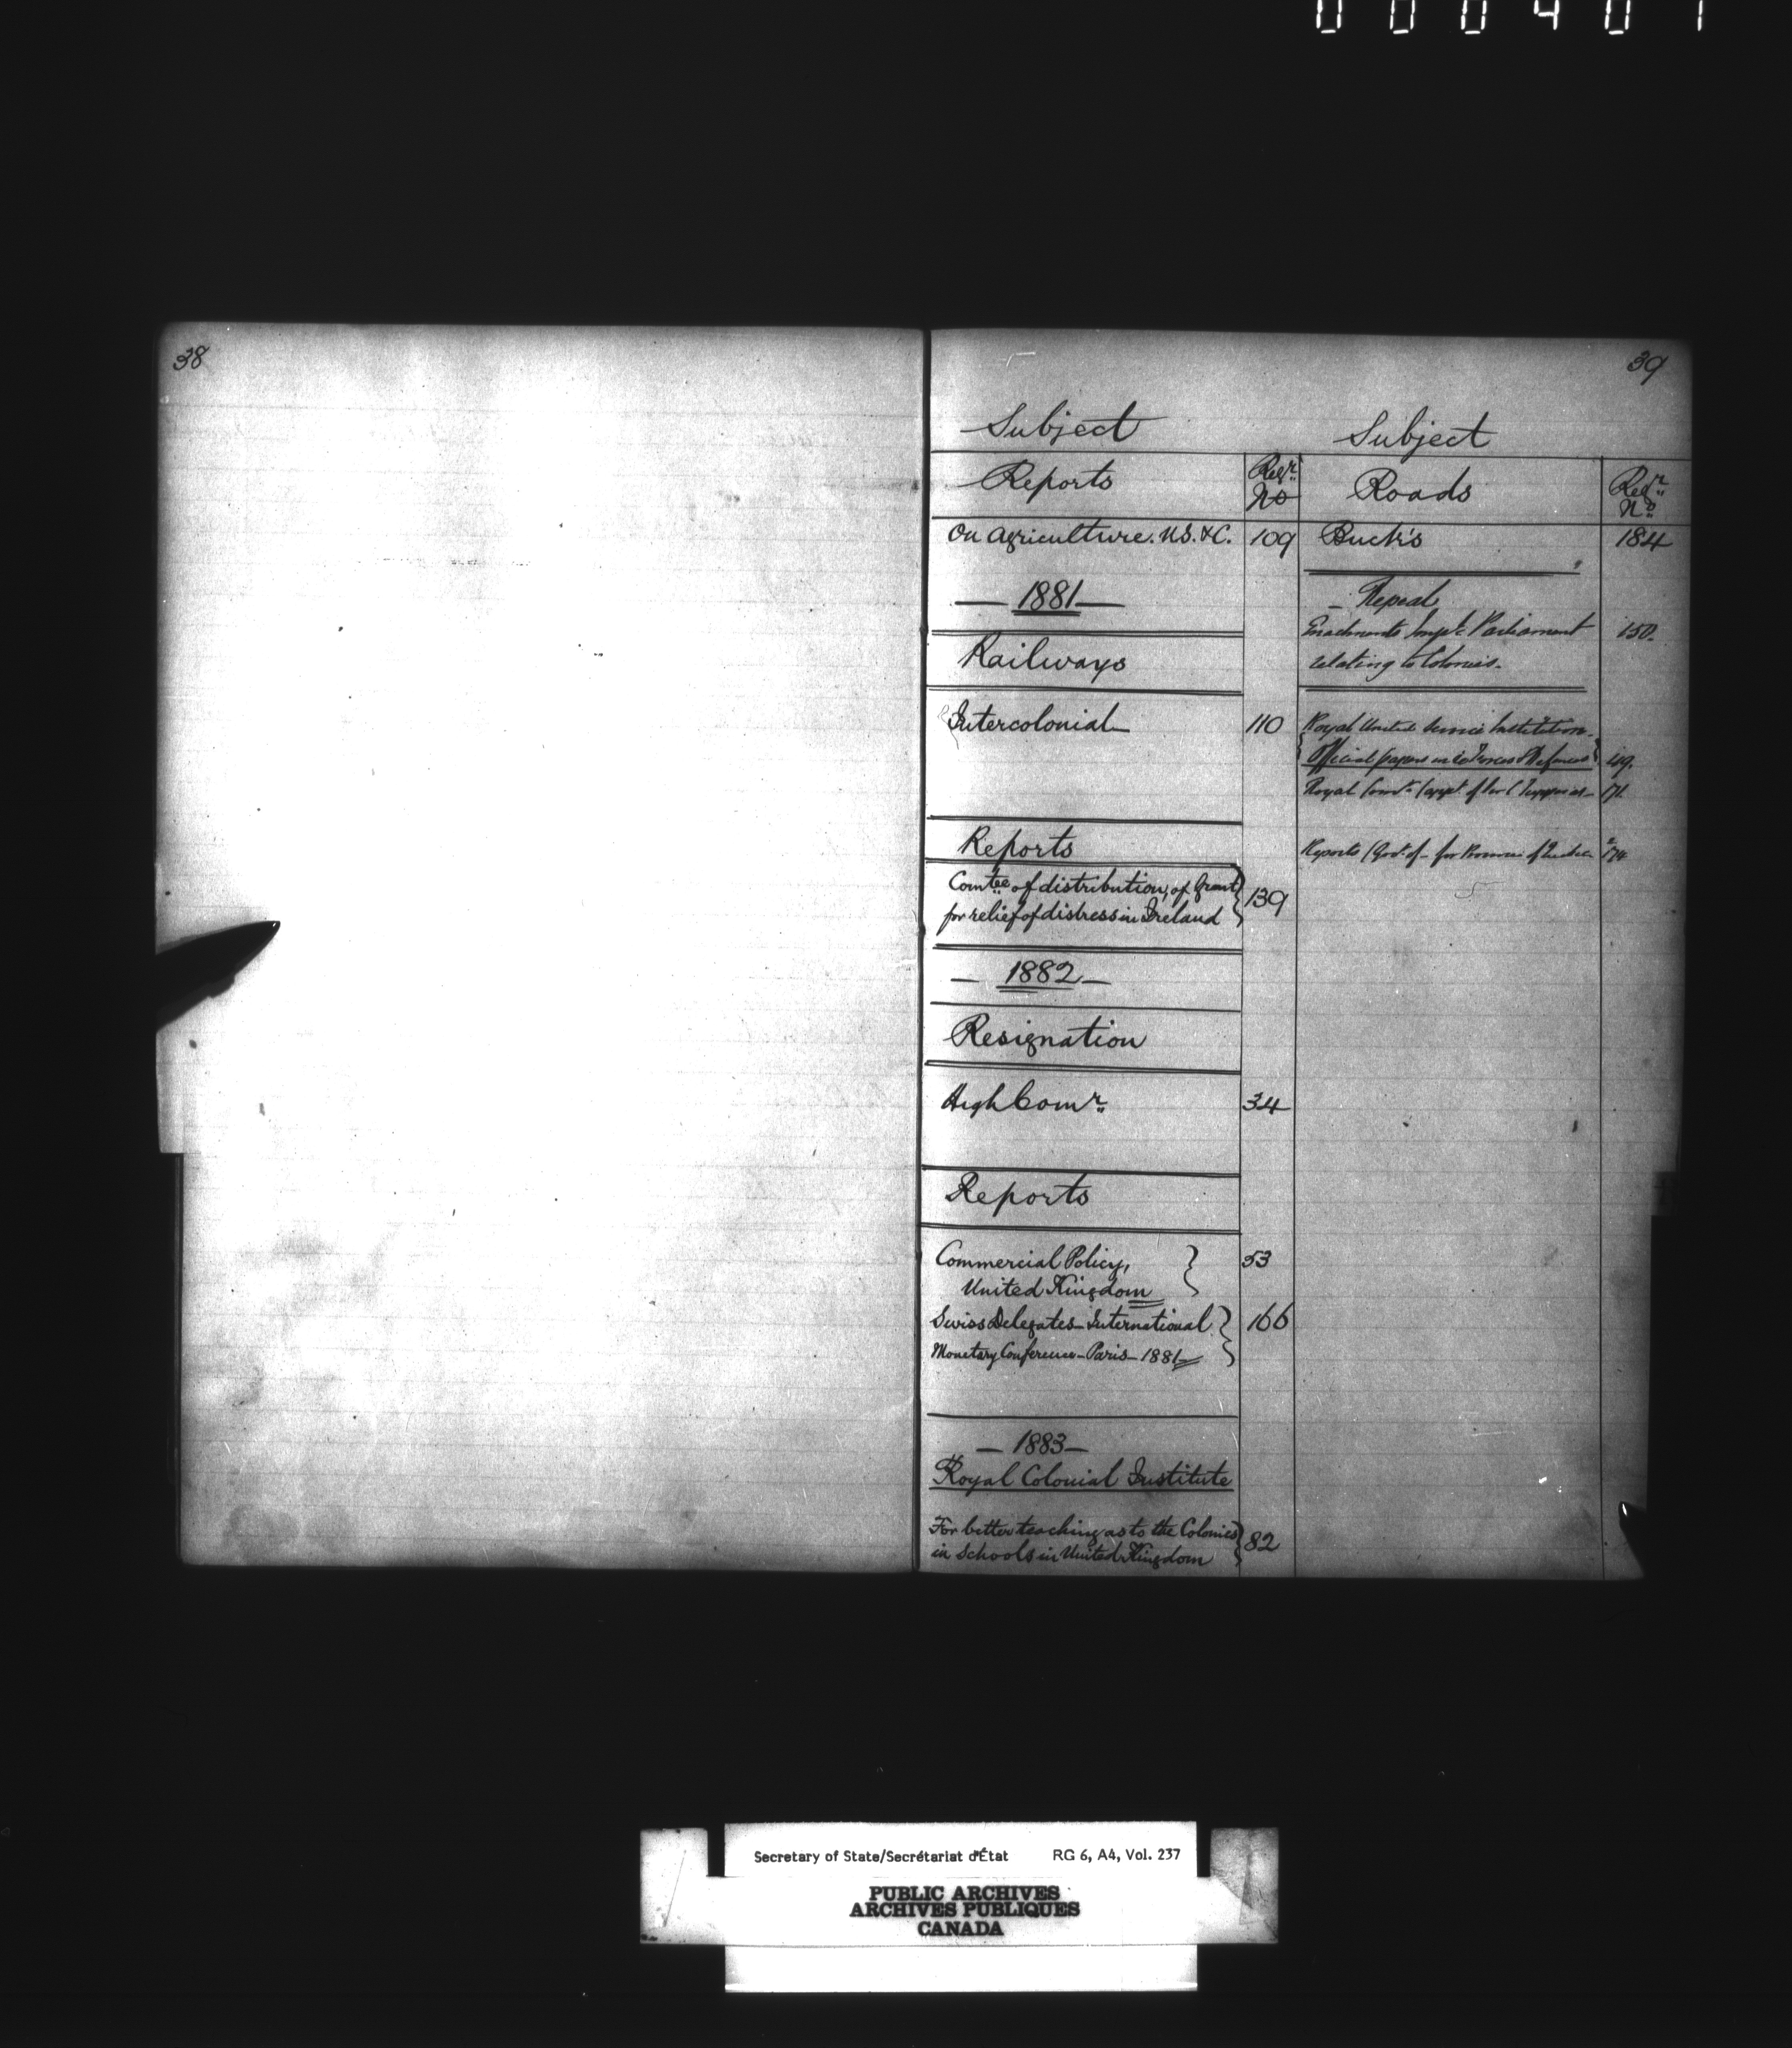 000401
38
39
Subject
Reports
Regr. No
On Agriculture. U.S. & C. 109
— 1881 —
Railways
Intercolonial 110
Reports
Comtee of distribution, of Grant
for relief of distress in Ireland 139
— 1882 —
Resignation
High Comr. 34
Reports
Commercial Policy,
United Kingdom 53
Swiss Delegates - International
Monetary Conference - Paris - 1881 166
— 1883 —
Royal Colonial Institute
For better teaching as to the Colonies
in Schools in United Kingdom 82
Subject
Roads
Regr. No
Buck's 184
- Repeal
Enactments Impl. Parliament 150.
relating to Colonies.
Royal United Service Institution.
Official papers Forces & Defences 49.
Royal 171.
Reports (Govt. of - for Province of Quebec 174
Secretary of State/Secrétariat d'État RG 6, A4, Vol. 237
PUBLIC ARCHIVES
ARCHIVES PUBLIQUES
CANADA